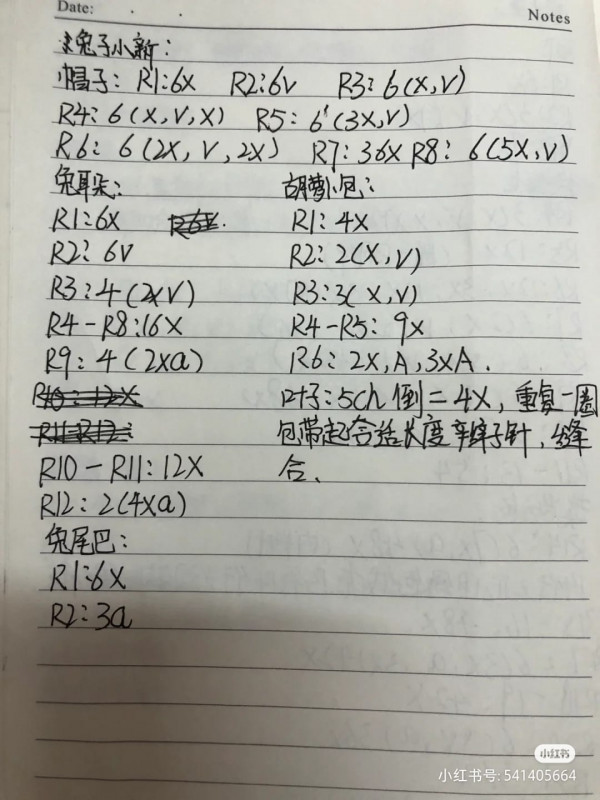 Date:
Notes
兔子小新:
帽子: R1:6x R2:6v R3:6(x,v)
R4:6(x,v,x) R5:6(3x,v)
R6:6(2x,v,2x) R7:36x R8:6(5x,v)
兔耳朵:
R1:6x
R2:6v
R3:4(2xv)
R4-R8:16x
R9:4(2xa)
R10:12x
R11-R12:
R10-R11:12x
R12:2(4xa)
兔尾巴:
R1:6x
R2:3a
胡萝卜包:
R1:4x
R2:2(x,v)
R3:3(x,v)
R4-R5:9x
R6:2x,A,3xA.
叶子:5ch倒二4x,重复一圈
包带起合适长度辫子针,缝
合、
小红书
小红书号: 541405664